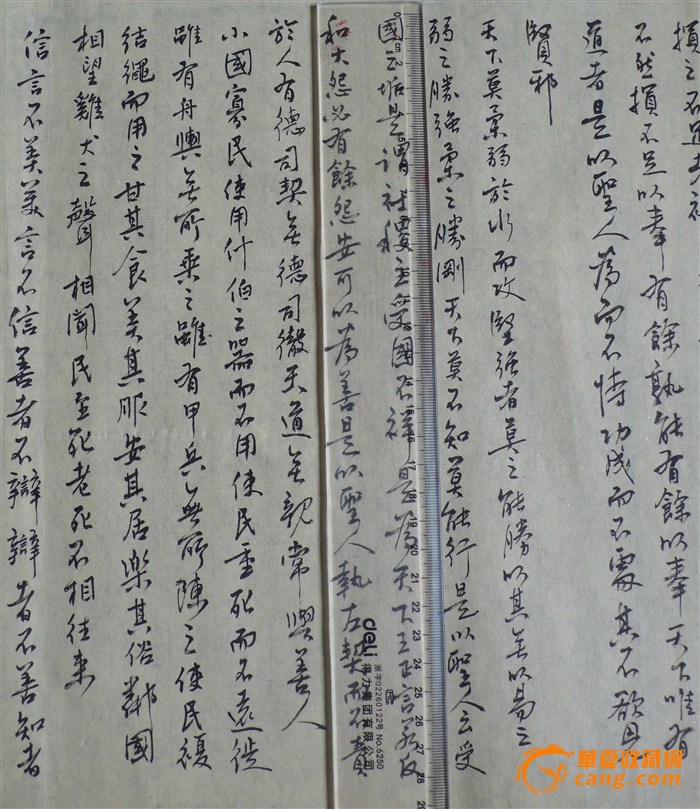 損之不足者補
不然損不足以奉有餘孰能有餘以奉天下唯有
道者是以聖人為而不恃功成而不處其不欲見
賢邪
天下莫柔弱於水而攻堅強者莫之能勝以其無以易之
弱之勝強柔之勝剛天下莫不知莫能行是以聖人云受
國之垢是謂社稷主受國不祥是為天下王正言若反
和大怨必有餘怨安可以為善是以聖人執左契而不責
於人有德司契無德司徹天道無親常與善人
小國寡民使用什伯之器而不用使民重死而不遠徙
雖有舟輿無所乘之雖有甲兵無所陳之使民復
結繩而用之甘其食美其服安其居樂其俗鄰國
相望雞犬之聲相聞民至死老死不相往來
信言不美美言不信善者不辯辯者不善知者
deli
得力集团有限公司
浙字02260122号 No.6250
華夏收藏網
cang.com